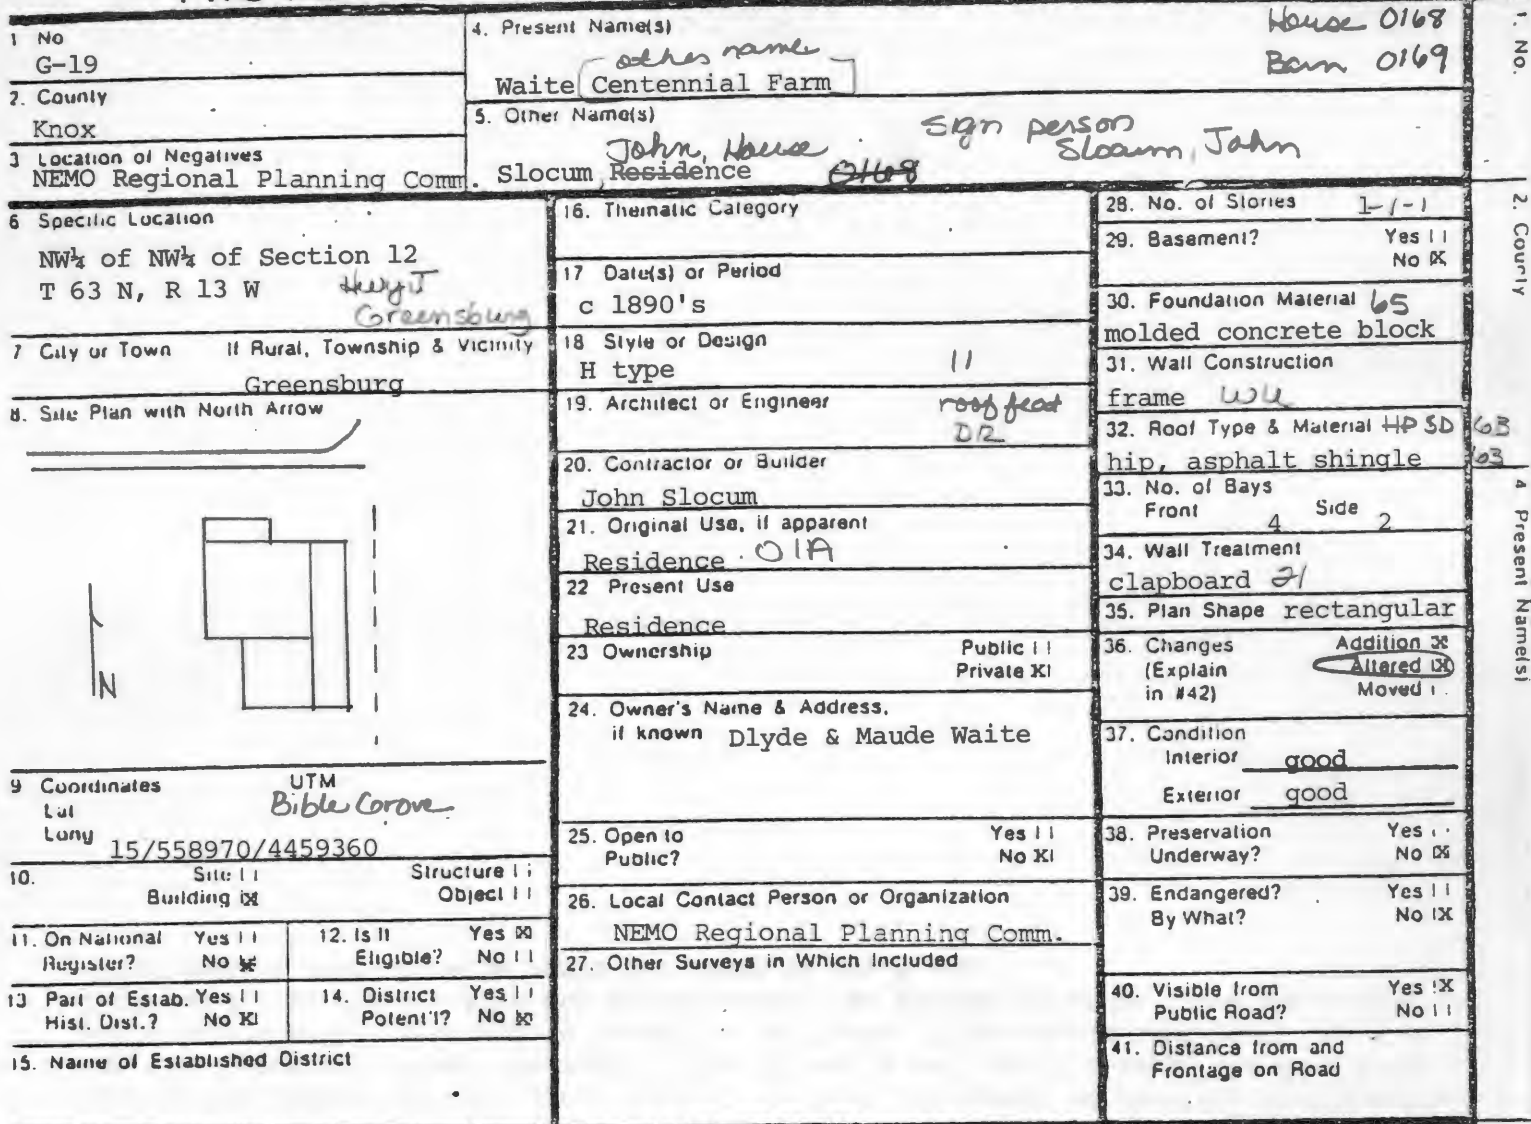 1 No
G-19
2. County
Knox
3 Location of Negatives
NEMO Regional Planning Comm.
4. Present Name(s)
other name
Waite Centennial Farm
House 0168
Barn 0169
5. Other Name(s)
John, House
Slocum, Residence 0168
sign person
Slocum, John
6 Specific Location
NW¼ of NW¼ of Section 12
T 63 N, R 13 W
Greensburg
7 City or Town If Rural, Township & Vicinity
Greensburg
8. Site Plan with North Arrow
N
9 Coordinates UTM
Lat
Bible Grove
Long
15/558970/4459360
10. Site | | Structure | |
Building |X Object | |
11. On National Register? Yes | | No X
12. Is It Eligible? Yes X No | |
13 Part of Estab. Hist. Dist.? Yes | | No X|
14. District Potent'l? Yes | | No X
15. Name of Established District
16. Thematic Category
17 Date(s) or Period
c 1890's
18 Style or Design
H type 11
19. Architect or Engineer
roof feat
DR
20. Contractor or Builder
John Slocum
21. Original Use, if apparent
Residence 01A
22 Present Use
Residence
23 Ownership Public | |
Private X|
24. Owner's Name & Address,
if known Dlyde & Maude Waite
25. Open to Yes | |
Public? No X|
26. Local Contact Person or Organization
NEMO Regional Planning Comm.
27. Other Surveys in Which Included
28. No. of Stories 1-1-1
29. Basement? Yes | |
No X
30. Foundation Material 65
molded concrete block
31. Wall Construction
frame WU
32. Roof Type & Material HP SD 63
hip, asphalt shingle 63
33. No. of Bays
Front 4 Side 2
34. Wall Treatment
clapboard 21
35. Plan Shape rectangular
36. Changes Addition X
(Explain Altered |X
in #42) Moved |
37. Condition
Interior good
Exterior good
38. Preservation Yes
Underway? No X
39. Endangered? Yes | |
By What? No |X
40. Visible from Yes |X
Public Road? No | |
41. Distance from and
Frontage on Road
1. No.
2. County
4 Present Name(s)